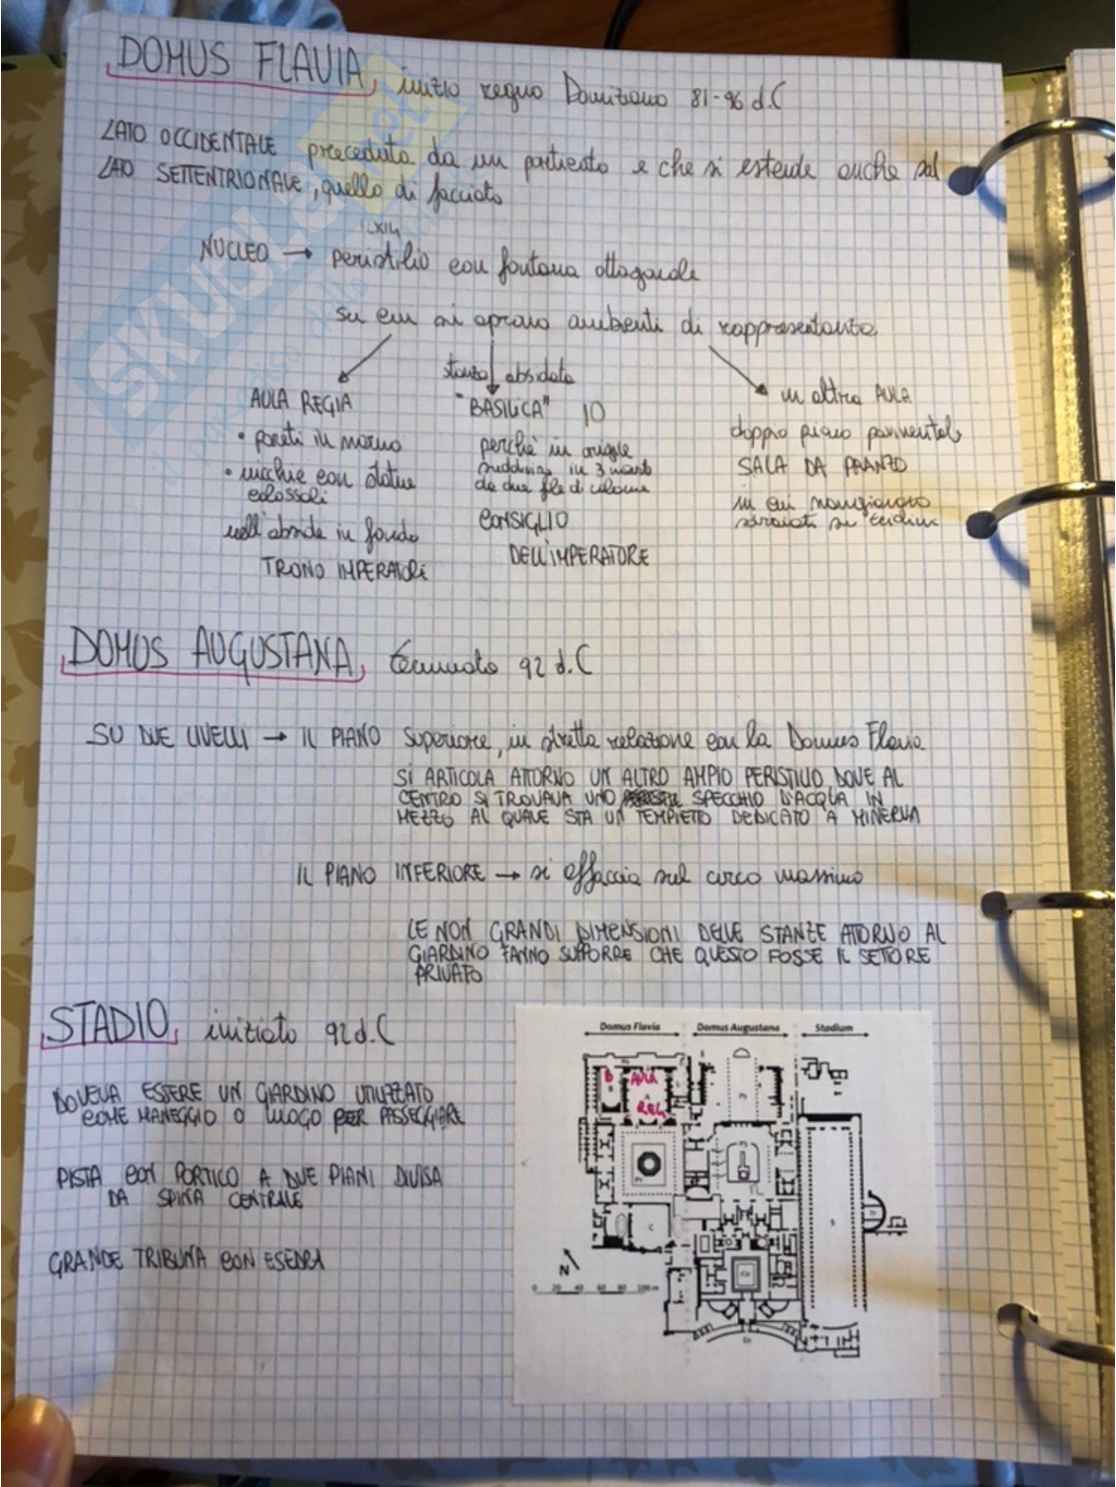 DOMUS FLAVIA, inizio regno Domiziano 81-96 d.C
LATO OCCIDENTALE preceduta da un porticato e che si estende anche sul
LATO SETTENTRIONALE, quello di facciata
NUCLEO → peristilio con fontana ottagonale
su cui si aprano ambienti di rappresentanza
stanza absidata
AULA REGIA
"BASILICA" 10
in altra AULA
• pareti in marmo
perchè in origine
doppio piano pavimentale
• nicchie con statue
suddivisa in 3 navate
SALA DA PRANZO
colossali
da due file di colonne
in cui mangiavano
nell'abside in fondo
CONSIGLIO
sdraiati su
TRONO IMPERATORE
DELL'IMPERATORE
DOMUS AUGUSTANA, terminata 92 d.C
SU DUE LIVELLI → IL PIANO superiore, in stretta relazione con la Domus Flavia
SI ARTICOLA ATTORNO UN ALTRO AMPIO PERISTILIO DOVE AL
CENTRO SI TROVAVA UNO SPECCHIO D'ACQUA IN
MEZZO AL QUALE STA UN TEMPIETTO DEDICATO A MINERVA
IL PIANO INFERIORE → si affaccia sul circo massimo
LE NON GRANDI DIMENSIONI DELLE STANZE ATTORNO AL
GIARDINO FANNO SUPPORRE CHE QUESTO FOSSE IL SETTORE
PRIVATO
STADIO, iniziato 92 d.C
DOVEVA ESSERE UN GIARDINO UTILIZZATO
COME MANEGGIO O LUOGO PER PASSEGGIARE
PISTA CON PORTICO A DUE PIANI DIVISA
DA SPINA CENTRALE
GRANDE TRIBUNA CON ESEDRA
Domus Flavia Domus Augustana Stadium
B AULA
REG.
N
0 20 40 60 80 100 m
SKUOLA.net